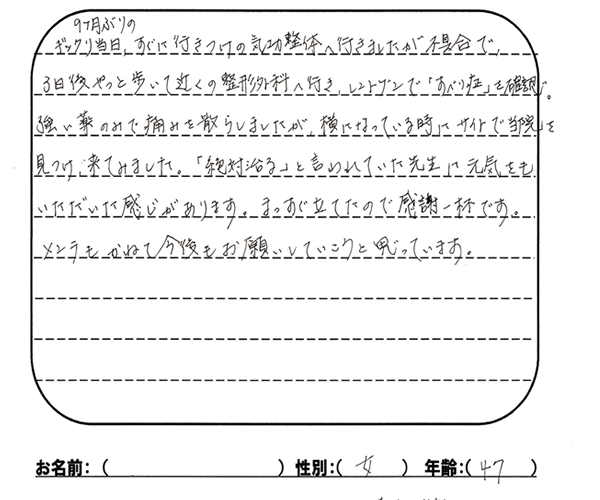 9ヶ月ぶりの
ギックリ当日、すぐに行きつけの気功整体へ行きましたが不具合で、
3日後やっと歩いて近くの整形外科へ行き、レントゲンで「すべり症」を確認。
強い薬のみで痛みを散らしましたが、横になっている時にサイトで当院を
見つけ、来てみました。「絶対治る」と言われていた先生に元気をも
いただいた感じがあります。まっすぐ立てたので感謝一杯です。
メンテもかねて今後もお願いしていこうと思っています。
お名前：（　　　）性別：（女）年齢：（47）